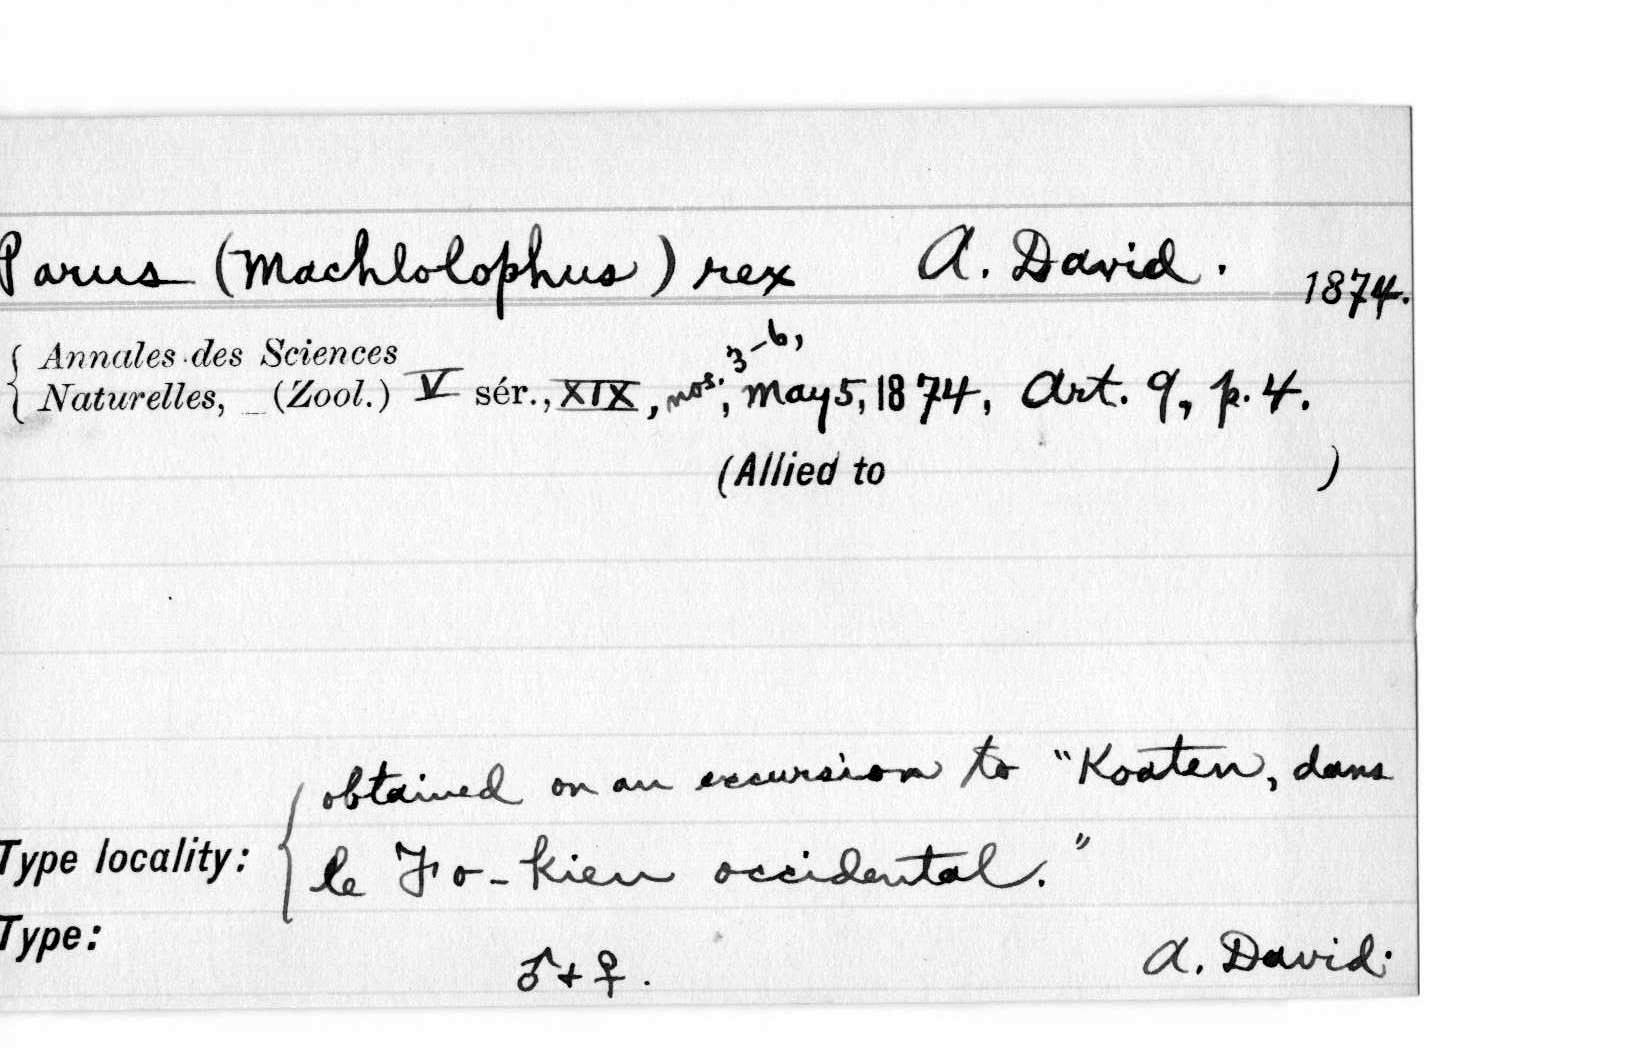 Parus (Machlolophus) rex A. David. 1874.
Annales des Sciences
Naturelles, (Zool.) V sér., XIX, nos. 3-6, May 5, 1874, Art. 9, p. 4.
(Allied to )
obtained on an excursion to "Koaten, dans
Type locality: le Fo-kien occidental."
Type:
♂ + ♀. A. David.